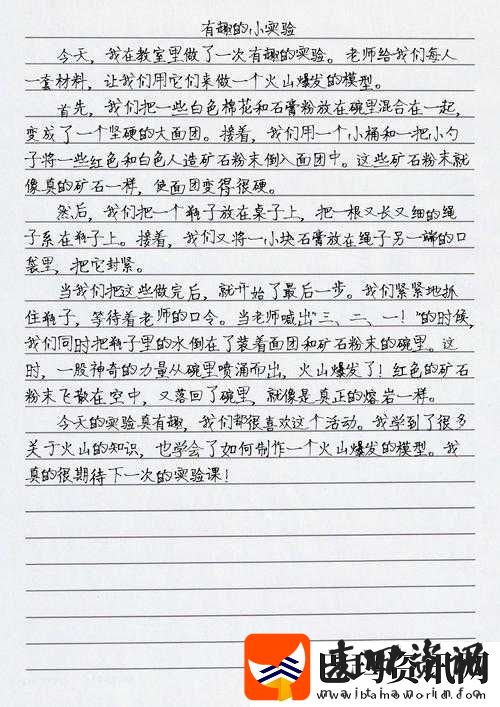 有趣的小实验
今天，我在教室里做了一次有趣的实验。老师给我们每人
一套材料，让我们用它们来做一个火山爆发的模型。
首先，我们把一些白色棉花和石膏粉放在碗里混合在一起，
变成了一个坚硬的大面团。接着，我们用一个小桶和一把小勺
子将一些红色和白色人造矿石粉末倒入面团中。这些矿石粉末就
像真的矿石一样，使面团变得很硬。
然后，我们把一个瓶子放在桌子上，把一根又长又细的绳
子系在瓶子上。接着，我们又将一小块石膏放在绳子另一端的口
袋里，把它封紧。
当我们把这些做完后，就开始了最后一步。我们紧紧地抓
住瓶子，等待着老师的口令。当老师喊出"三、二、一！"的时候，
我们同时把瓶子里的水倒在了装着面团和矿石粉末的碗里。这
时，一股神奇的力量从碗里喷涌而出，火山爆发了！红色的矿石
粉末飞散在空中，又落回了碗里，就像是真正的熔岩一样。
今天的实验真有趣，我们都很喜欢这个活动。我学到了很多
关于火山的知识，也学会了如何制作一个火山爆发的模型。我
真的很期待下一次的实验课！
资讯网